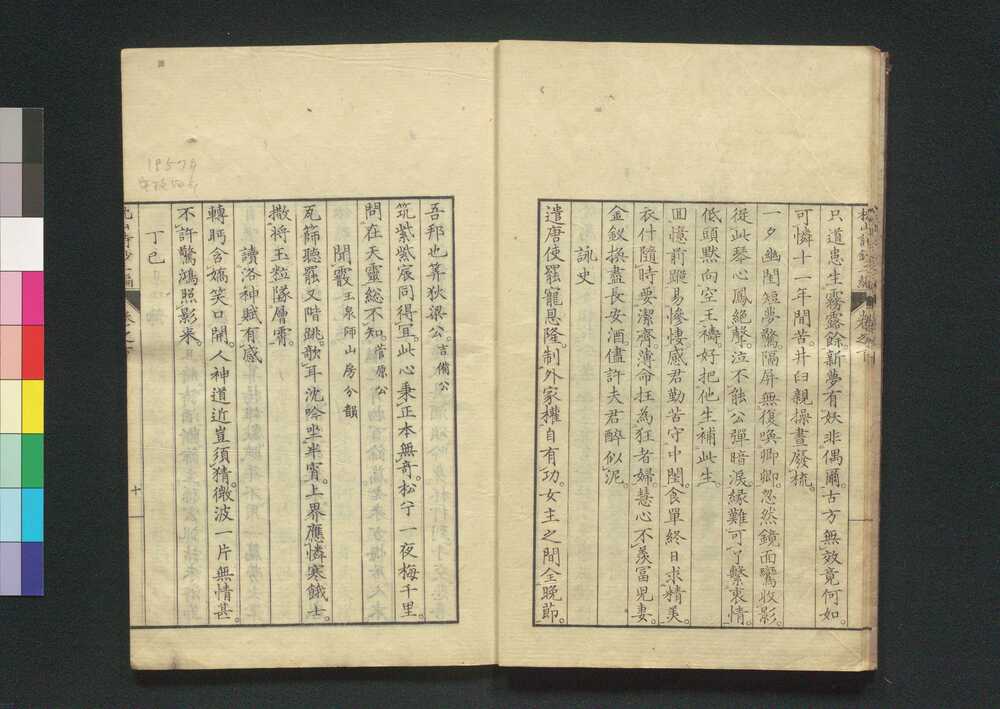 只道患生霧露餘。新夢有妖非偶爾。古方無效竟何如。
可憐十一年間苦。井臼親操晝廢梳。
一夕幽閨短夢驚。隔屏無復喚卿卿。忽然鏡面鸞收影。
從此琴心鳳絕聲。泣不能公彈暗淚。緣難可了繫衷情。
低頭默向空王禱。好把他生補此生。
回憶前蹤易慘悽。感君勤苦守中閨。食單終日求精美。
衣什隨時要潔齊。薄命狂為狂者婦。慧心不羨冨兒妻。
金釵換盡長安酒。儘許夫君醉似泥。
詠史
遣唐使罷寵恩隆。制外家權自有功。女主之間全晚節。
吾邦也算狄梁公。吉備公
筑紫紫宸同得冝。此心秉正本無奇。松宁一夜梅千里。
問在天靈総不知。菅原公
聞霰玉泉師山房分韻
瓦篩聽罷又階跳。歌耳沈吟坐半宵。上界應憐寒餓士。
撒將玉粒墜層霄。
讀洛神賦有感
轉眄含嬌笑口開。人神道近豈須猜。微波一片無情甚。
不許驚鴻照影来。
丁巳
十